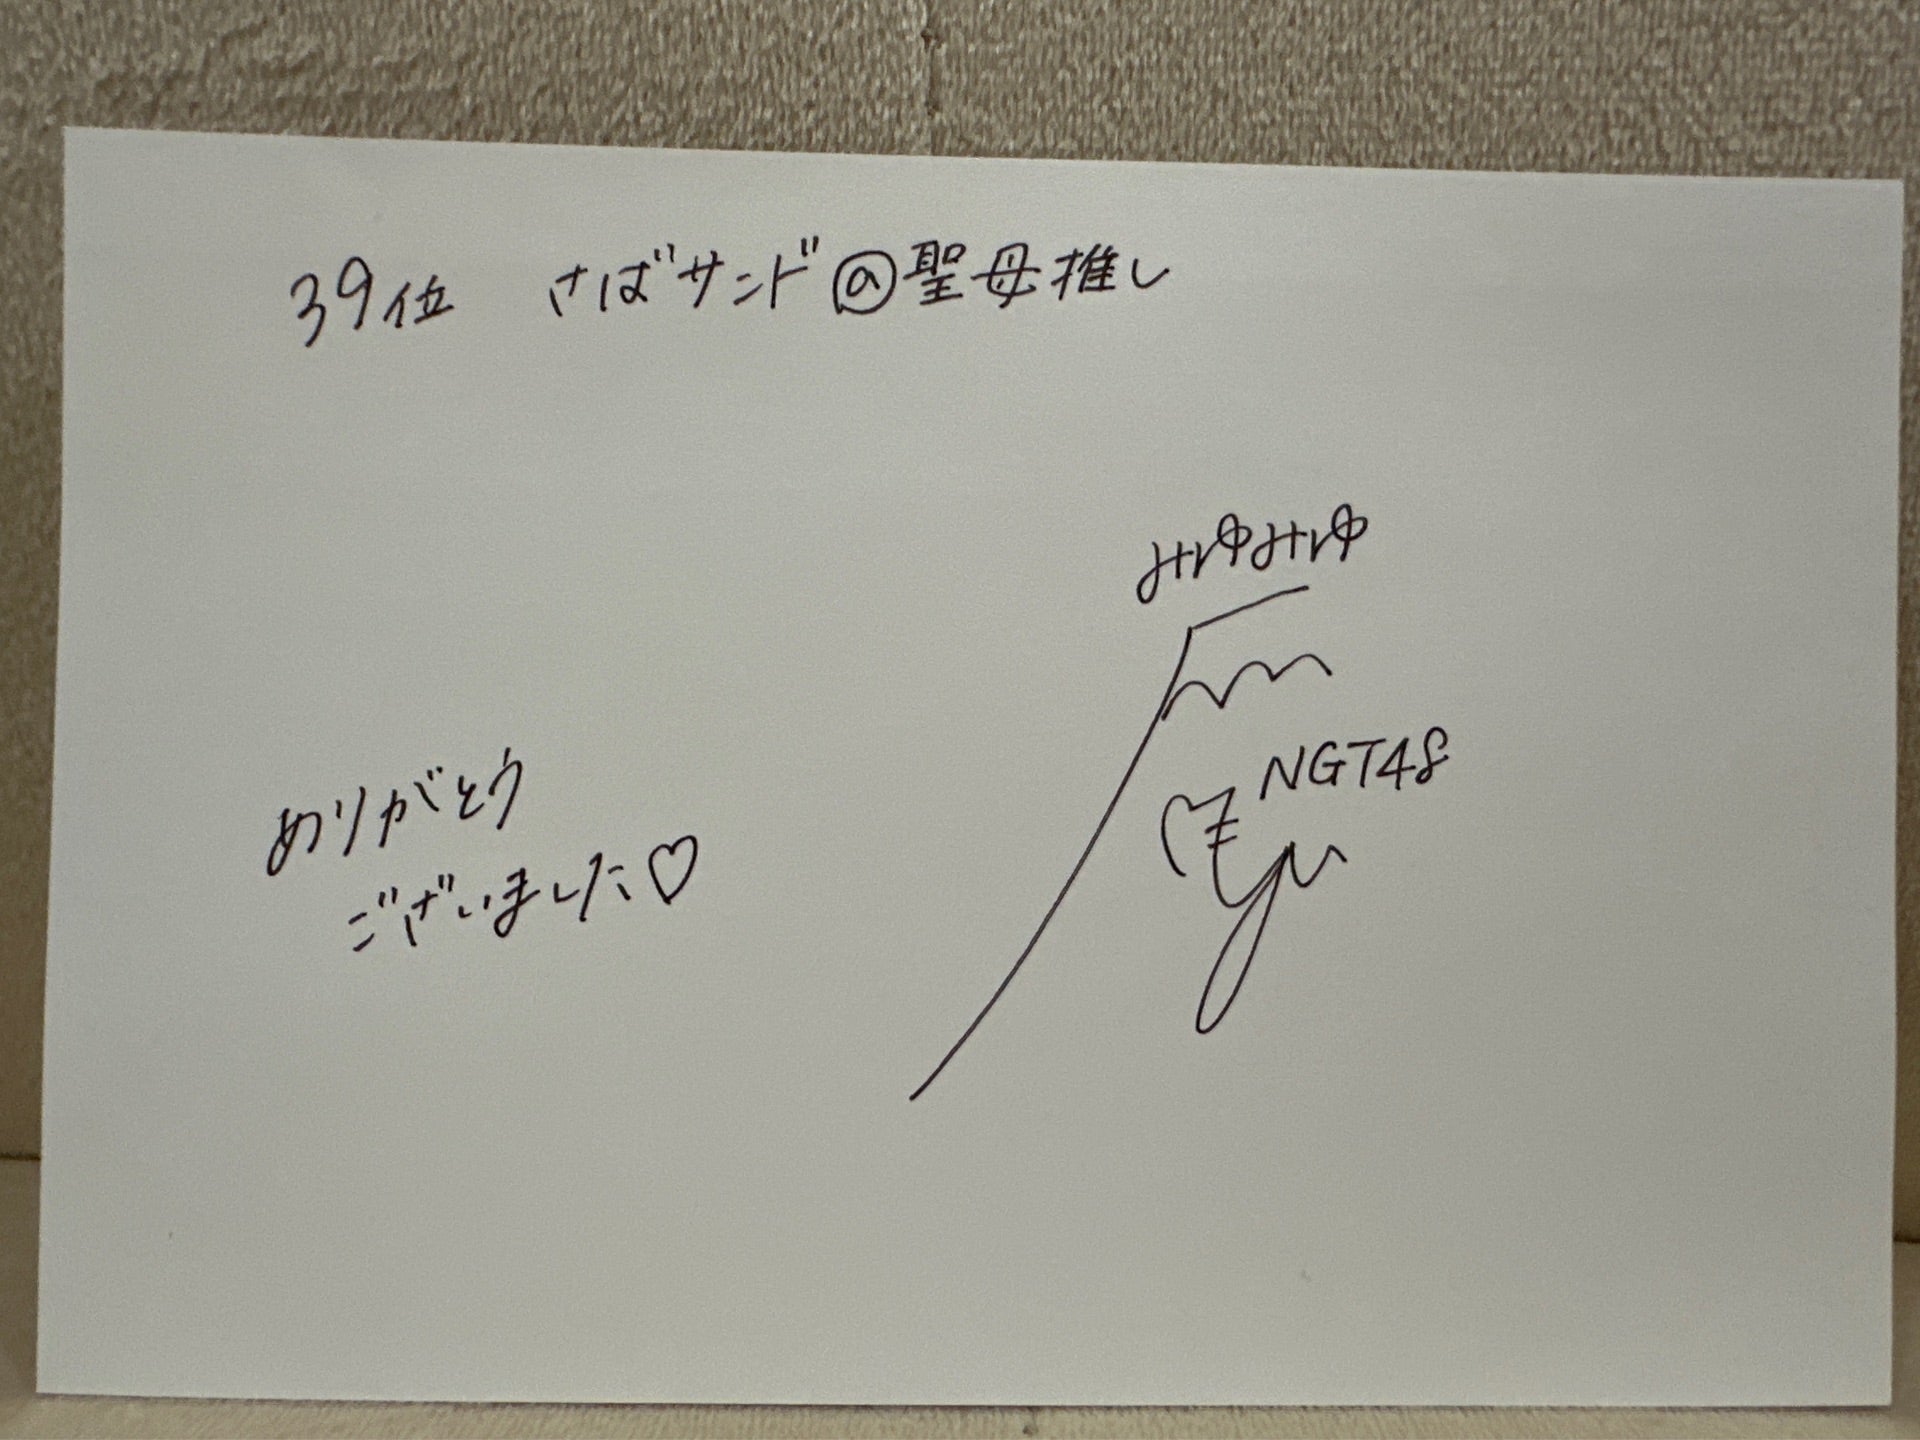 39位 さばサンド@聖母推し
みゆみゆ
NGT48
ありがとう
ございました♡